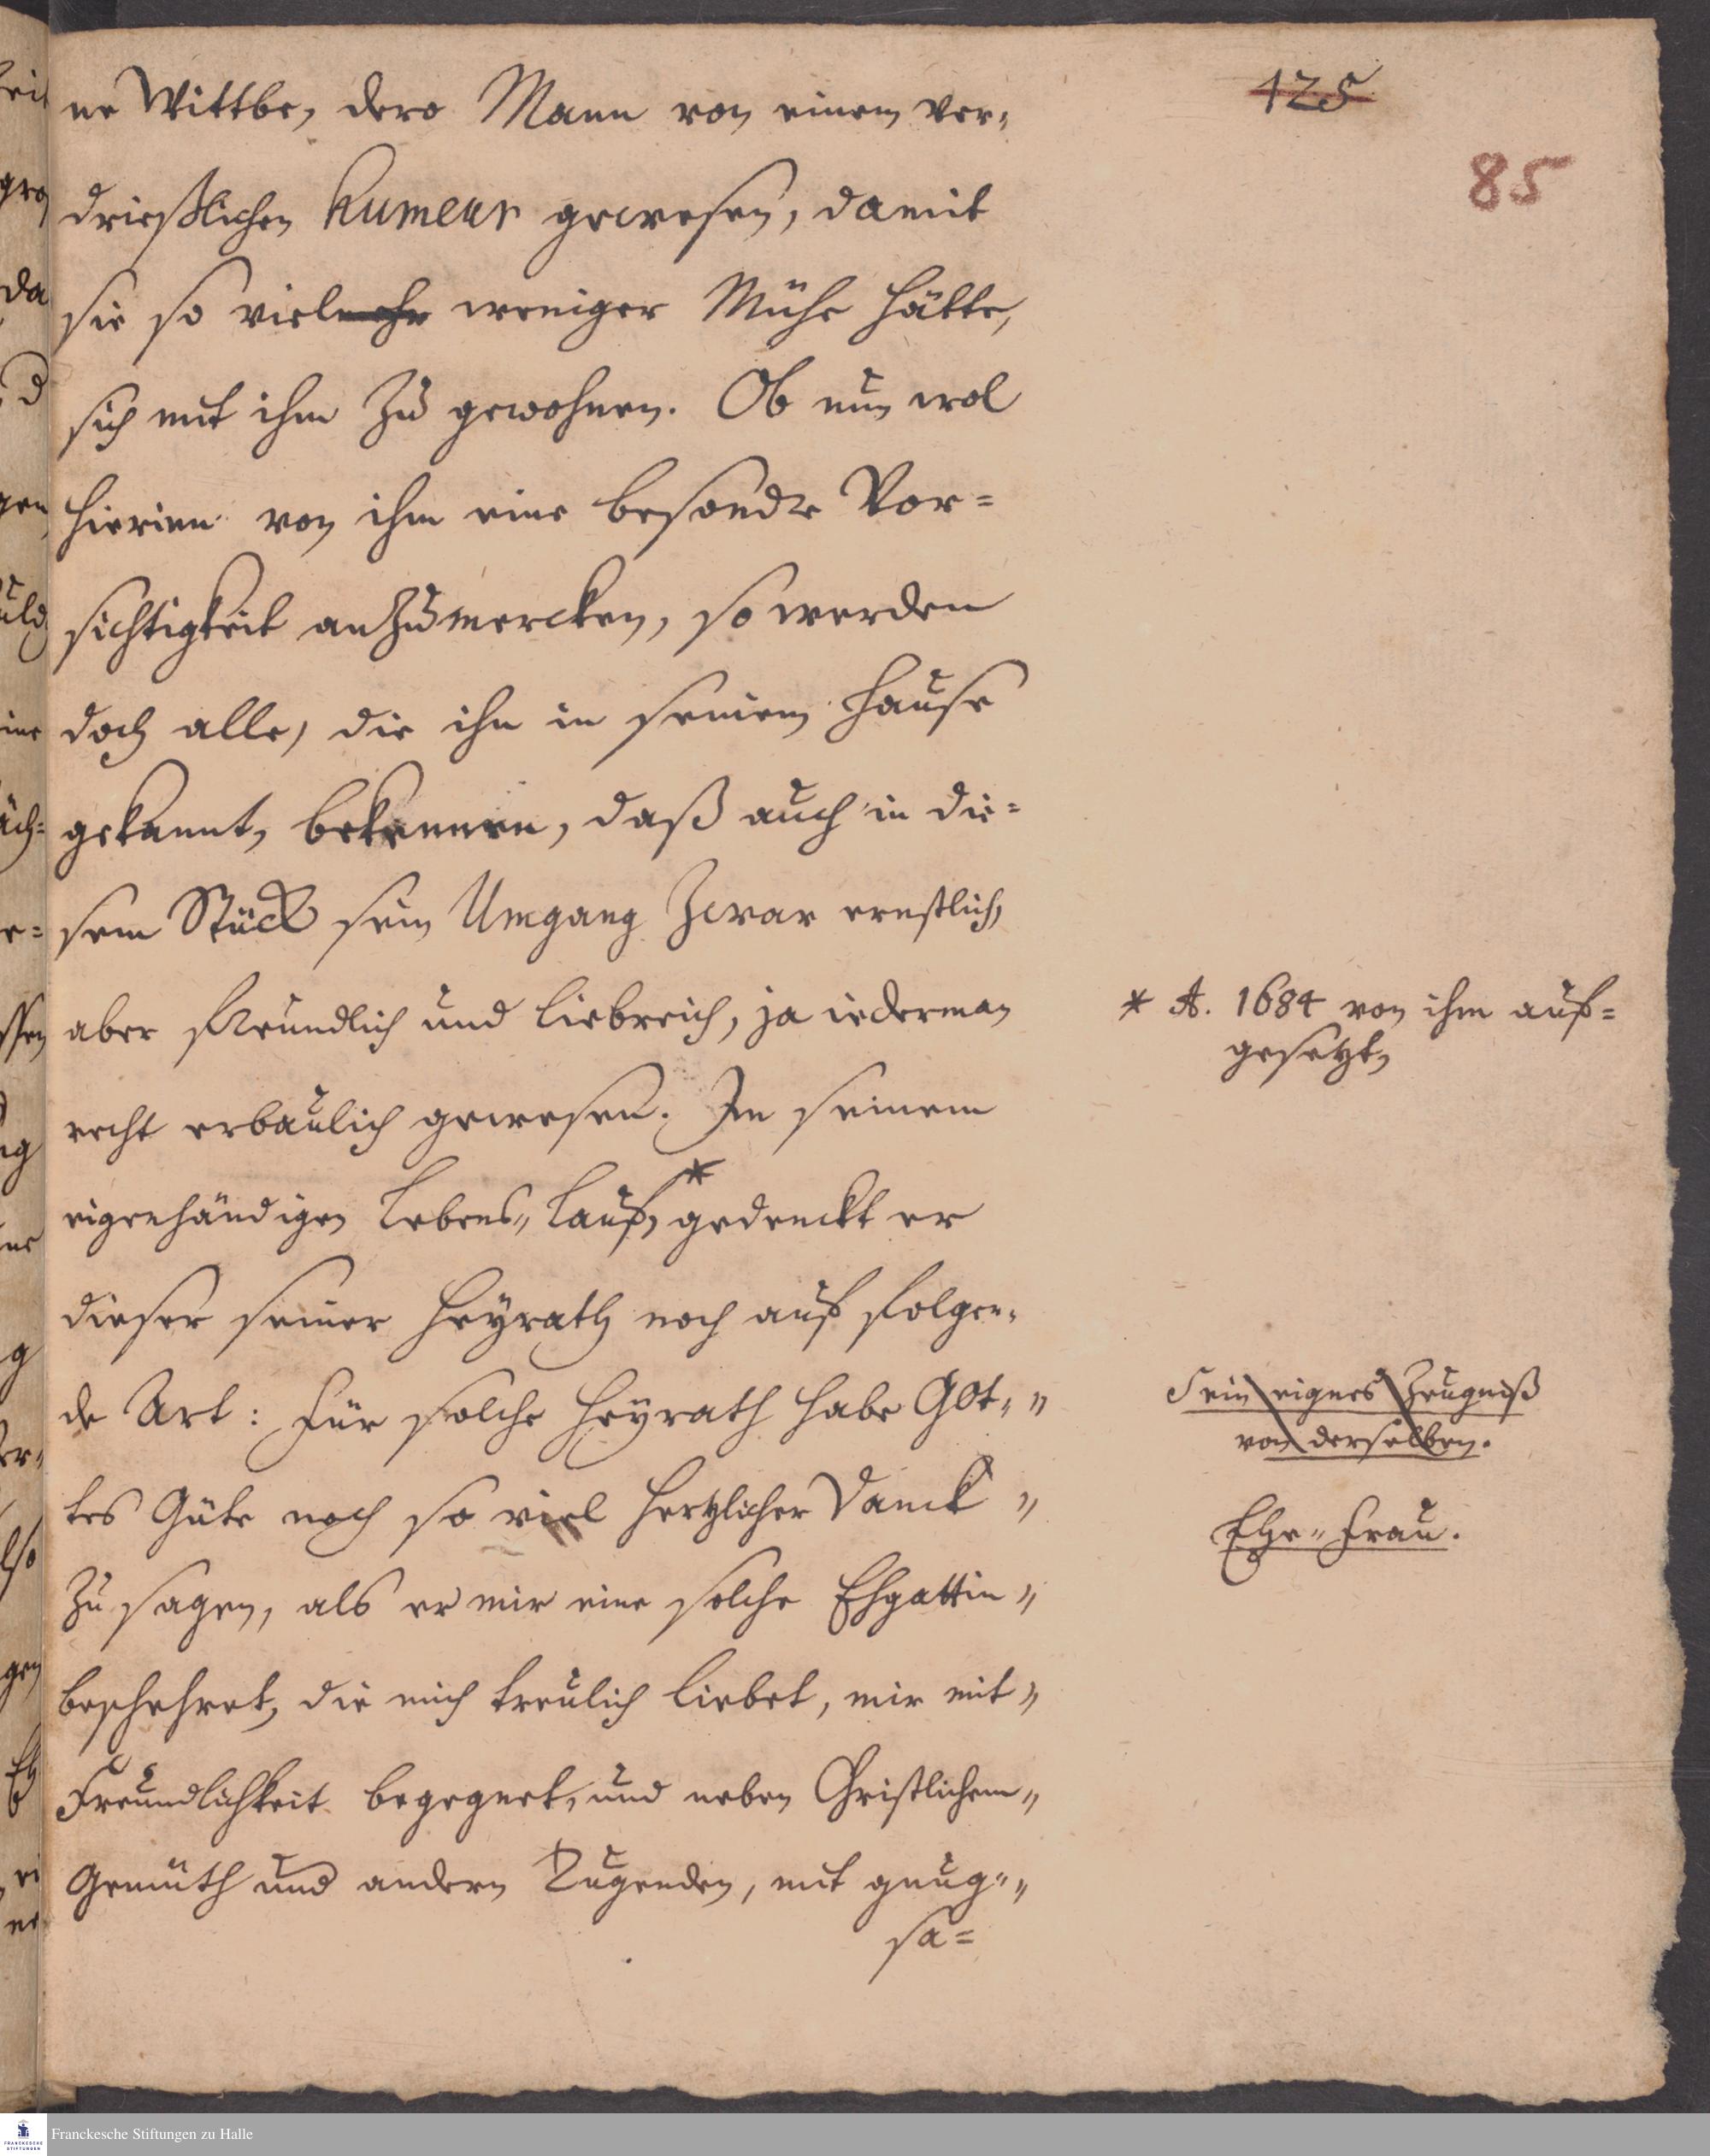 125
85
ne Wittbe, dero Mann von einem ver-
drießlichen humeur gewesen, damit
sie so vielmehr weniger Mühe hätte,
sich mit ihm zu gewohnen. Ob nun wol
hierinn von ihm eine besondre Vor=
sichtigkeit anzumercken, so werden
doch alle, die ihn in seinem Hause
gekannt, bekennen, daß auch in die=
sem Stück sein Umgang zwar ernstlich,
aber freundlich und liebreich, ja iederman
recht erbaulich gewesen. In seinem
eigenhändigen Lebens-Lauf,* gedenckt er
dieser seiner Heyrath noch auf folgen-
de Art: Für solche Heyrath habe Got- "
tes Güte noch so viel hertzlicher Danck "
zu sagen, als er mir eine solche Ehgattin "
beschehret, die mich treulich liebet, mir mit "
Freundlichkeit begegnet, und neben Christlichem "
Gemüth und andern Tugenden, mit gnug- "
sa=
* A. 1684 von ihm auf=
gesetzt,
Sein eignes Zeugniß
von derselben.
Ehe-Frau.
Franckesche Stiftungen zu Halle